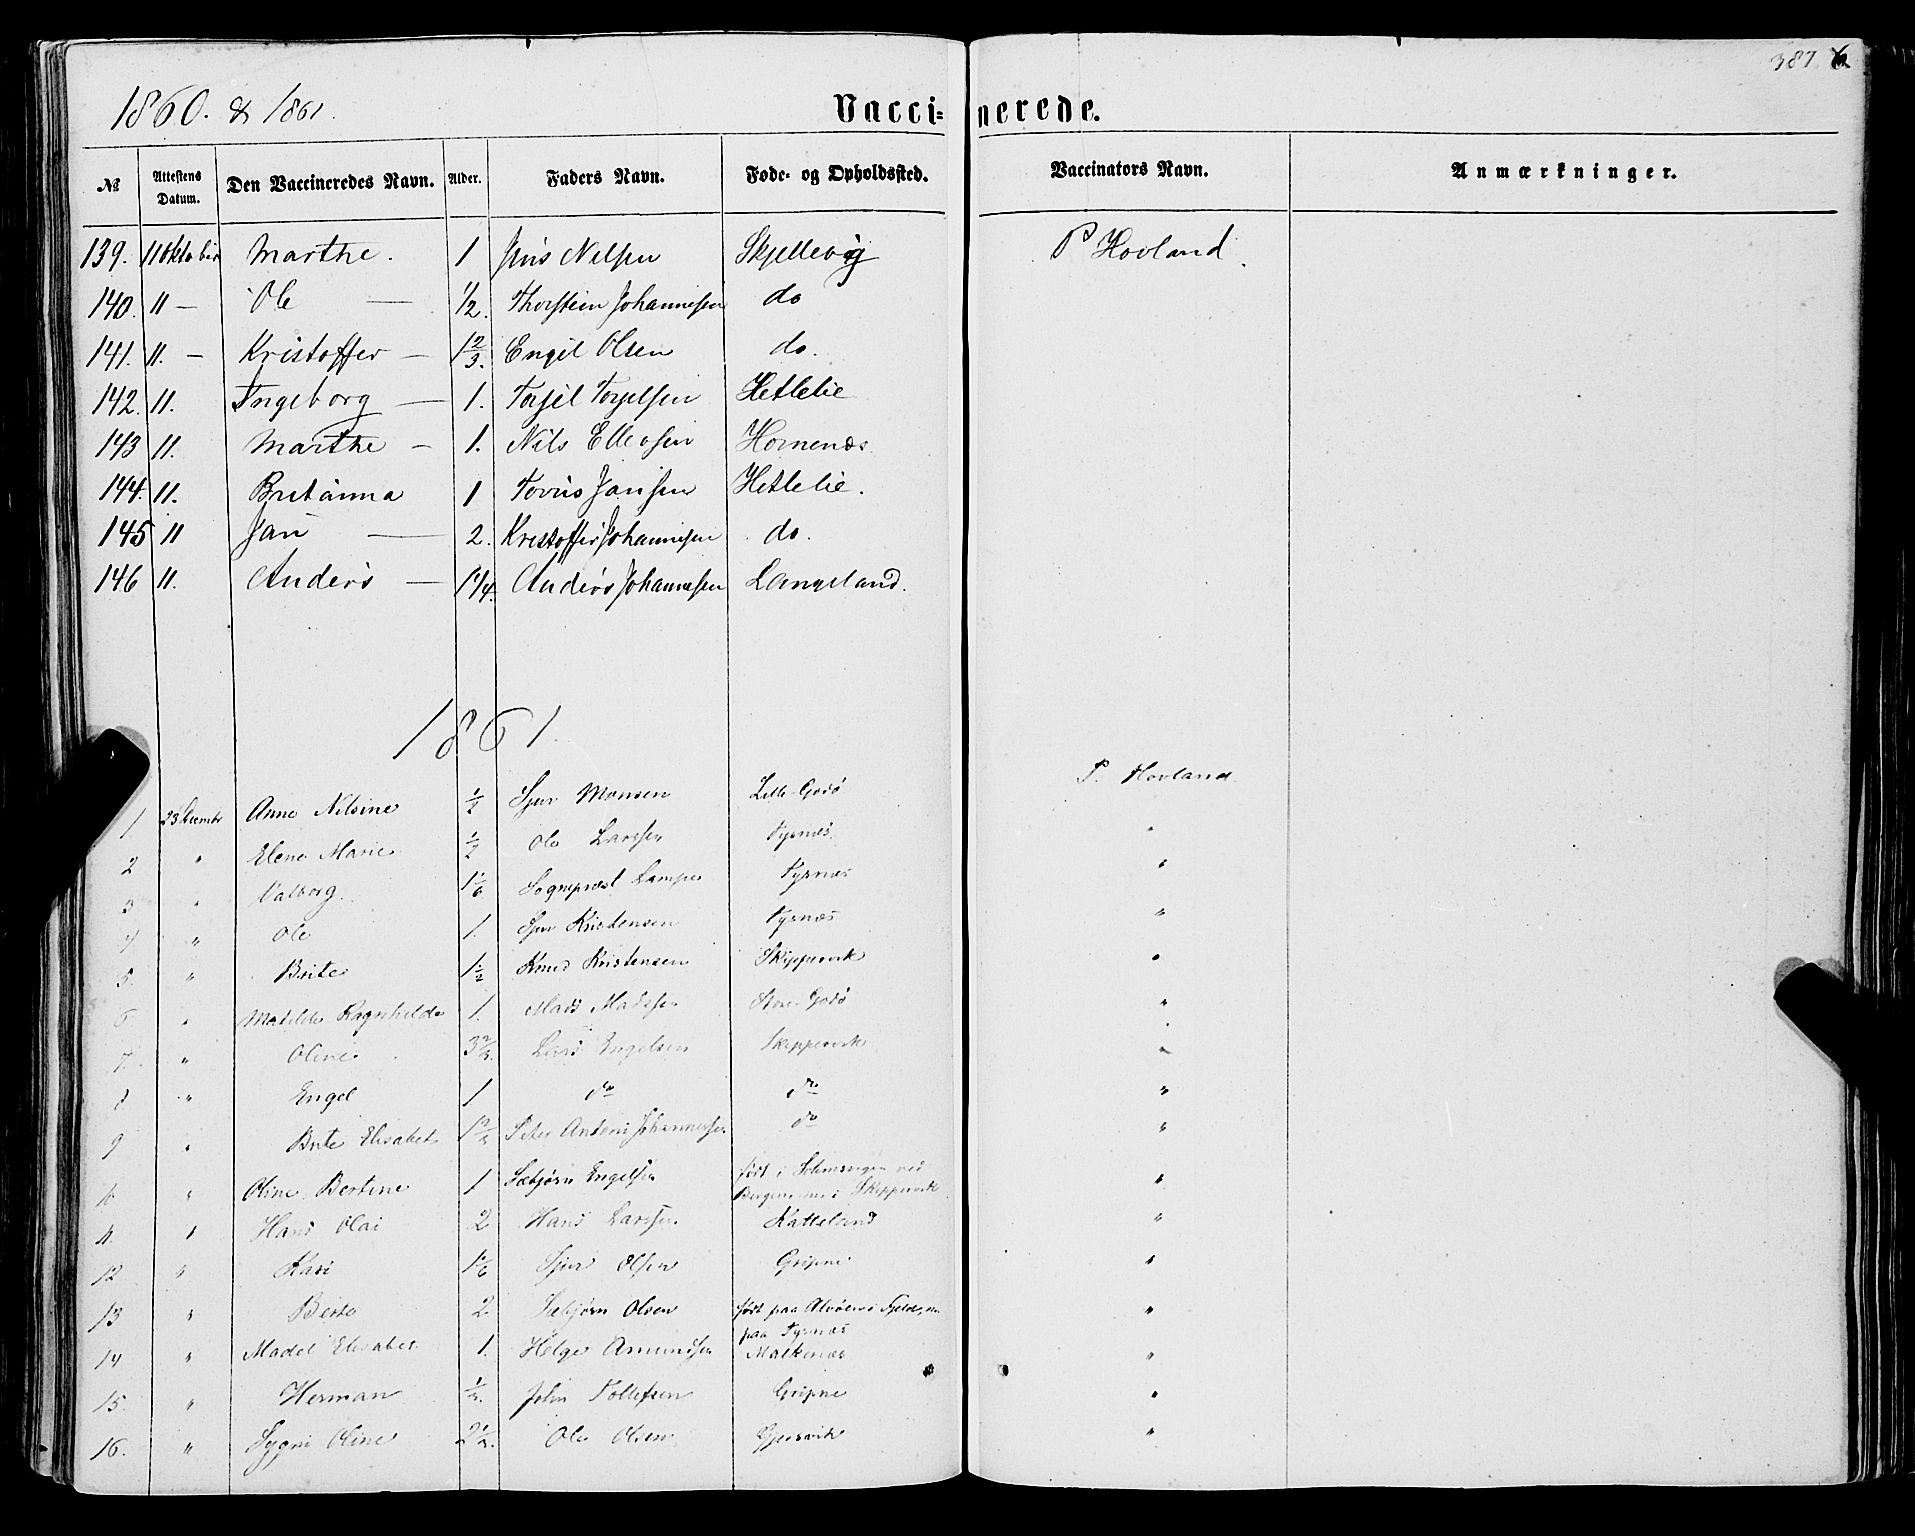 387
1860. & 1861.
Vaccinerede.
№ Attestens Datum. Den Vaccineredes Navn. Alder. Faders Navn. Føde- og Opholdssted. Vaccinators Navn. Anmærkninger.
139. 11 Oktober Marthe. 1 Jens Nilsen Skjellevig P Hovland.
140. 11 — Ole — 1/2. Thorstein Johannesen do
141. 11. — Kristoffer — 1 2/3. Engel Olsen do.
142. 11. Ingeborg — 1. Torjel Torjelsen Hetlelie
143 11. Marthe — 1. Nils Ellevsen Hornenæs.
144. 11. Britanna 1 Jansen Hetlelie.
145 11 Jan — 2. Kristoffer Johannesen do.
146 11. Anders — 1 1/4. Anders Johannesen Langeland.
1861.
1 23 Decembr Anne Nilsine 1/2 Sjur Monsen Lille-Godø P. Hovland
2 " Elene Marie 1/2 Ole Larssen Tysnæs "
3 " Valborg. 1 1/6 Sognepræst Lampe Tysnæs "
4 " Ole 1. Sjur Kristensen Tysnæs "
5 " Brite 1 1/2 Knud Kristensen Skippervik "
6 " Matilde Ragnhilde 1. Mads Madssen Store-Godø "
7. " Oline 3 1/2. Lars Engelsen Skippervik "
8 " Engel 1 do do "
9 " Brite Elisabet 1 1/2 Peter Antoni Johannessen do "
10 " Oline Bertine 1 Sæbjørn Engelsen født i ved
Bergen, nu i Skippervik "
11. " Hans Olai 2 Hans Larssen Katteland "
12 " Kari 1 1/6 Sjur Olsen Gripne "
13 " Berte 2 Sæbjørn Olsen født paa Alvøen i Fjeld, nu
paa Tysnæs "
14 " Madel Elisabet 1. Helge Amundsen Malkenæs "
15. " Herman 1/2. John Tollefsen Gripne "
16. " Sygni Oline 2 1/2. Ole Olsen Gjersvik "